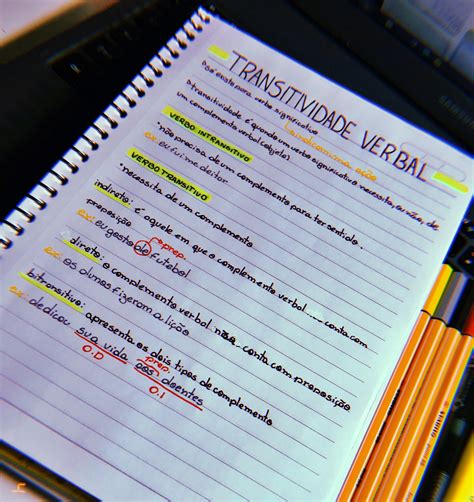 TRANSITIVIDADE VERBAL
só existe para verbo significativo
indicam uma ação
transitividade é quando um verbo significativo necessita, ou não, de
um complemento verbal (objeto).
VERBO INTRANSITIVO
não precisa de um complemento para ter sentido.
ex: eu fui me deitar
VERBO TRANSITIVO
*necessita de um complemento
indireto: é aquele em que o complemento verbal conta com
preposição
prep.
ex: eu gosto de futebol
direto: o complemento verbal não conta com preposição
ex: os alunos fizeram a lição
bitransitivo: apresenta os dois tipos de complemento
prep
ex: dedicou sua vida aos doentes
O.D O.I
SAMSUNG
STABILO